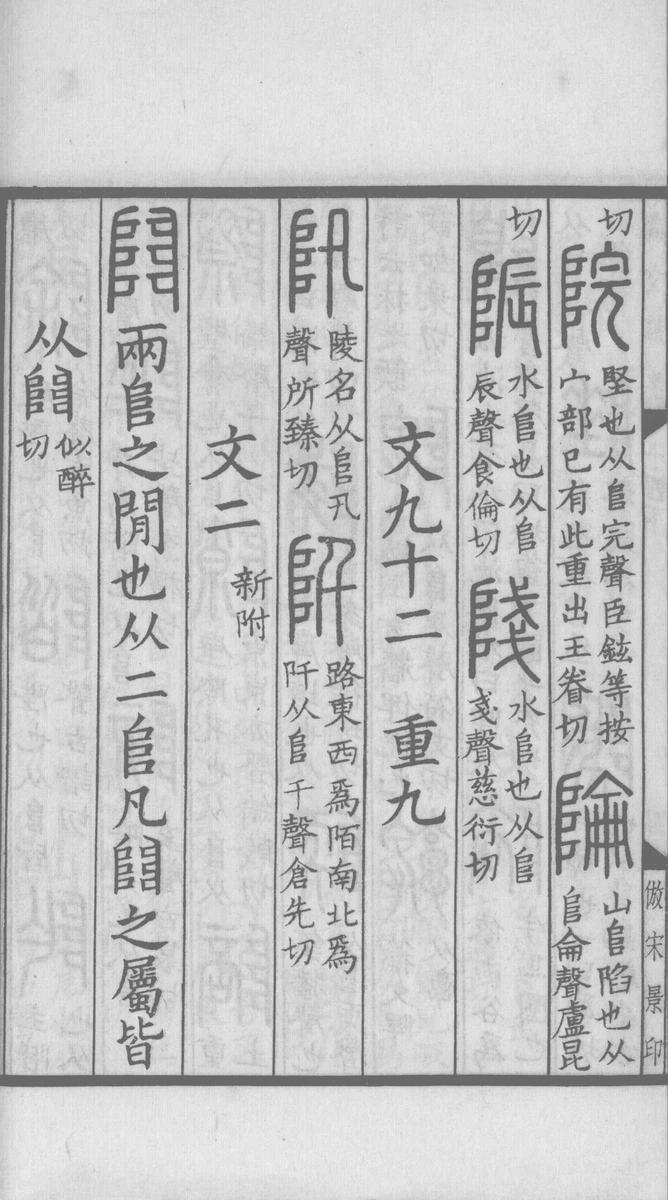 切 院 堅也从𨸏完聲臣鉉等按宀部已有此重出王眷切 陯 山𨸏陷也从𨸏侖聲盧昆
切 陙 水𨸏也从𨸏辰聲食倫切 䧖 水𨸏也从𨸏戔聲慈衍切
文九十二 重九
阠 陵名从𨸏卂聲所臻切 阡 路東西爲陌南北爲阡从𨸏千聲倉先切
文二 新附
𨺅 兩𨸏之閒也从二𨸏凡𨺅之屬皆
从𨺅 似醉切
倣宋景印